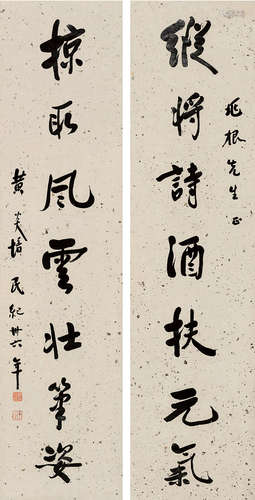 兆根先生正
縱將詩酒扶元氣
掠取風雲壯筆姿
黄炎培 民紀卅六年